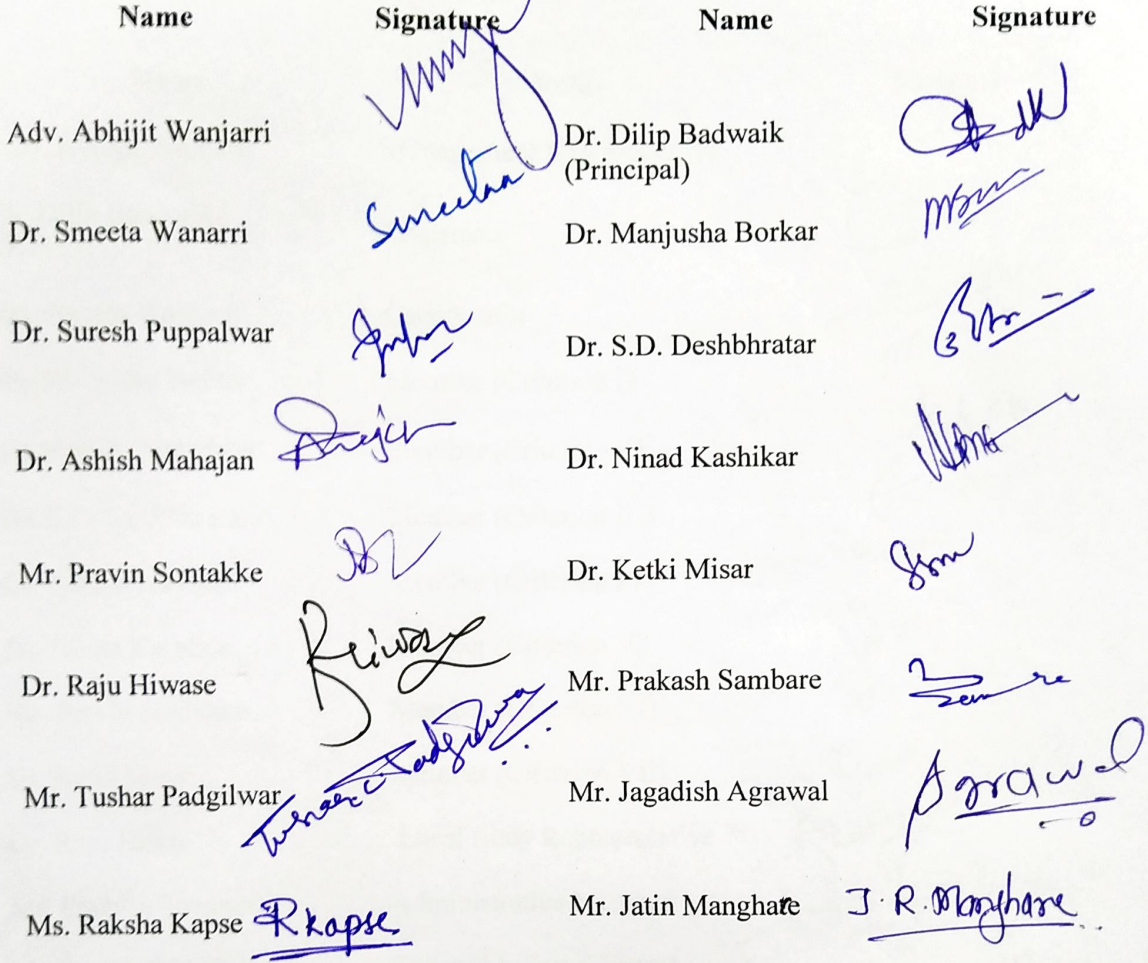 Name Signature Name Signature
Adv. Abhijit Wanjarri Dr. Dilip Badwaik
(Principal)
Dr. Smeeta Wanarri Smeetaa Dr. Manjusha Borkar
Dr. Suresh Puppalwar Dr. S.D. Deshbhratar
Dr. Ashish Mahajan Dr. Ninad Kashikar
Mr. Pravin Sontakke Dr. Ketki Misar
Dr. Raju Hiwase Mr. Prakash Sambare
Mr. Tushar Padgilwar Mr. Jagadish Agrawal Agrawal
Ms. Raksha Kapse RKapse Mr. Jatin Manghate J. R. Manghare